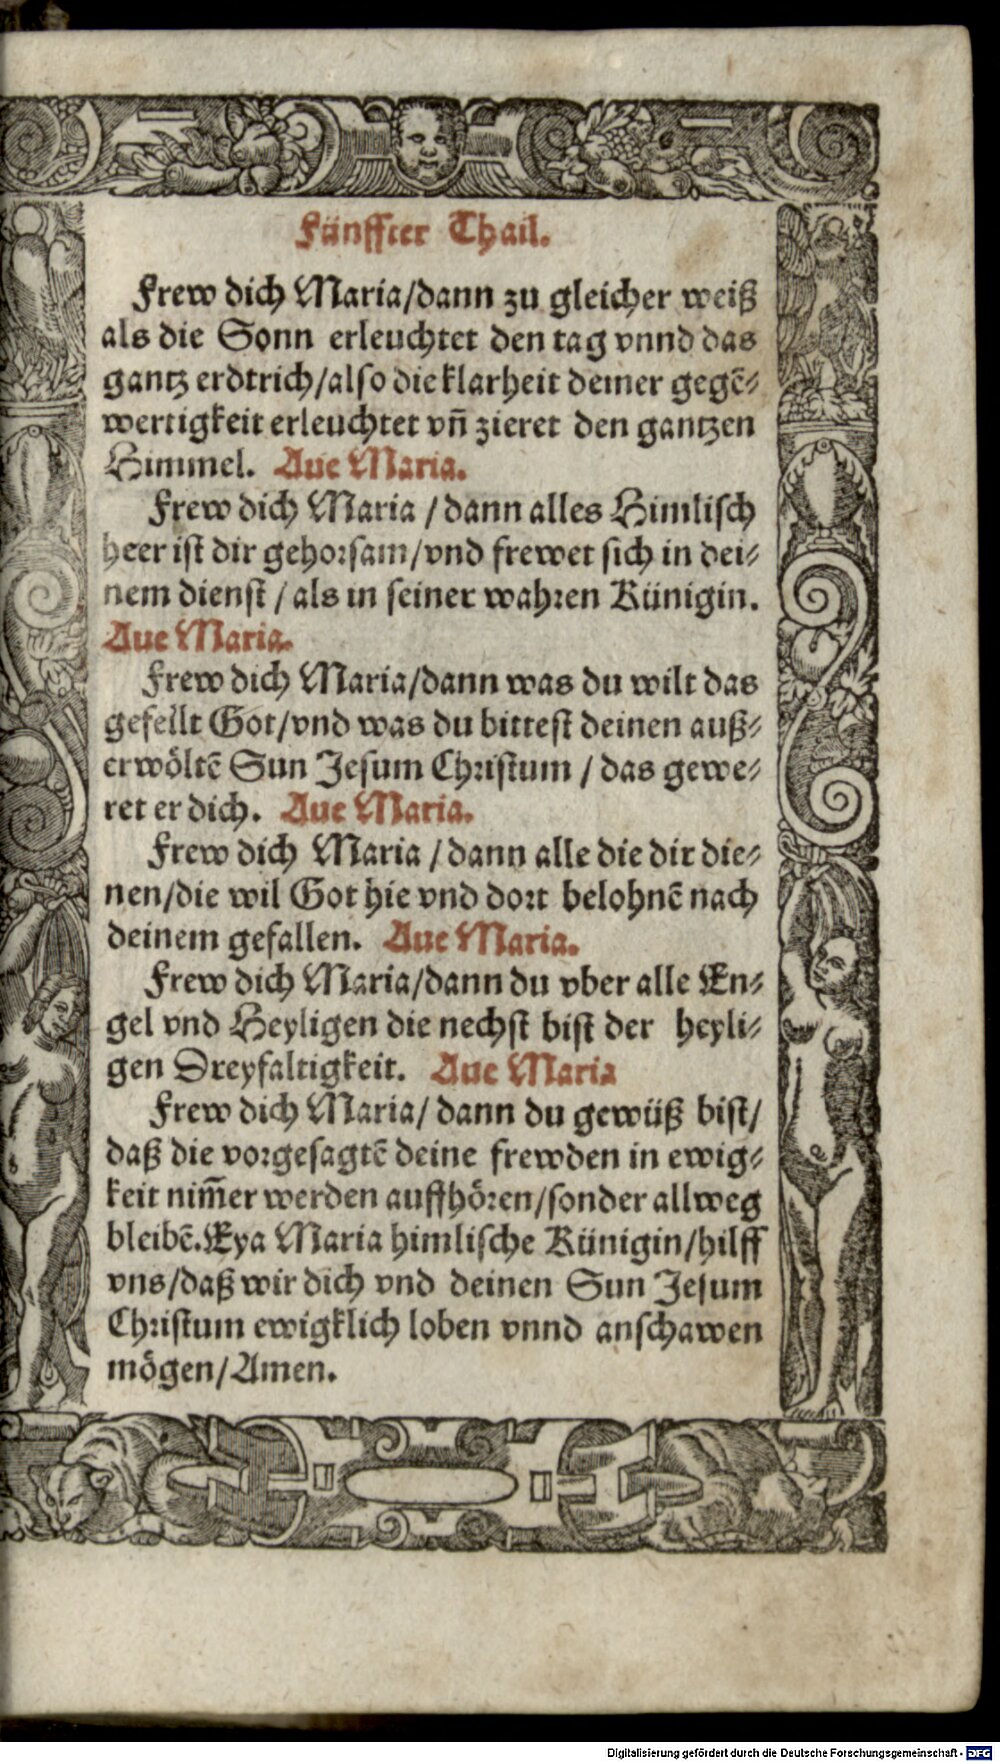 Fünffter Thail.
Frew dich Maria/dann zu gleicher weiß
als die Sonn erleuchtet den tag vnnd das
gantz erdtrich/also die klarheit deiner gegē-
wertigkeit erleuchtet vn̄ zieret den gantzen
Himmel. Aue Maria.
Frew dich Maria / dann alles Himlisch
heer ist dir gehorsam/vnd frewet sich in dei-
nem dienst / als in seiner wahren Künigin.
Aue Maria.
Frew dich Maria/dann was du wilt das
gefellt Got/vnd was du bittest deinen auß-
erwöltē Sun Jesum Christum / das gewe-
ret er dich. Aue Maria.
Frew dich Maria / dann alle die dir die-
nen/die wil Got hie vnd dort belohnē nach
deinem gefallen. Aue Maria.
Frew dich Maria/dann du vber alle En-
gel vnd Heyligen die nechst bist der heyli-
gen Dreyfaltigkeit. Aue Maria
Frew dich Maria/ dann du gewüß bist/
daß die vorgesagtē deine frewden in ewig-
keit nim̄er werden auffhören/sonder allweg
bleibē. Eya Maria himlische Künigin/hilff
vns/daß wir dich vnd deinen Sun Jesum
Christum ewigklich loben vnnd anschawen
mögen/Amen.
Digitalisierung gefördert durch die Deutsche Forschungsgemeinschaft - DFG